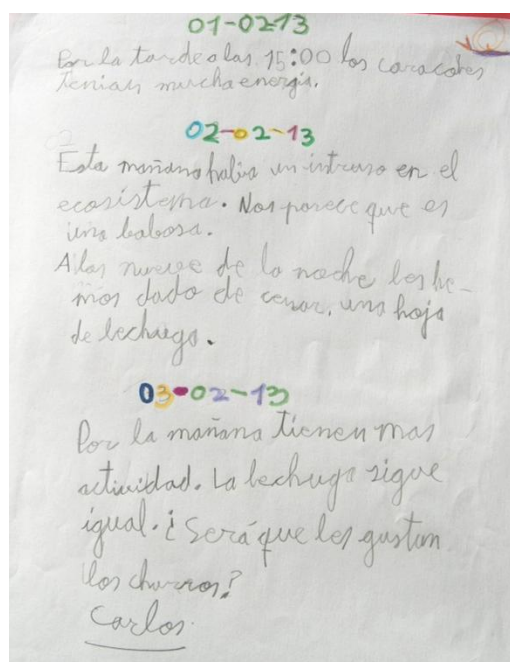 01-0213
Por la tarde a las 15:00 los caracoles
Tenian mucha energía.
02-02-13
Esta mañana habia un intruso en el
ecosistema. Nos parece que es
una babosa.
A las nueve de la noche les he-
mos dado de cenar, una hoja
de lechuga.
03-02-13
Por la mañana tienen mas
actividad. La lechuga sigue
igual. ¿Será que les gustan
los churros?
Carlos.